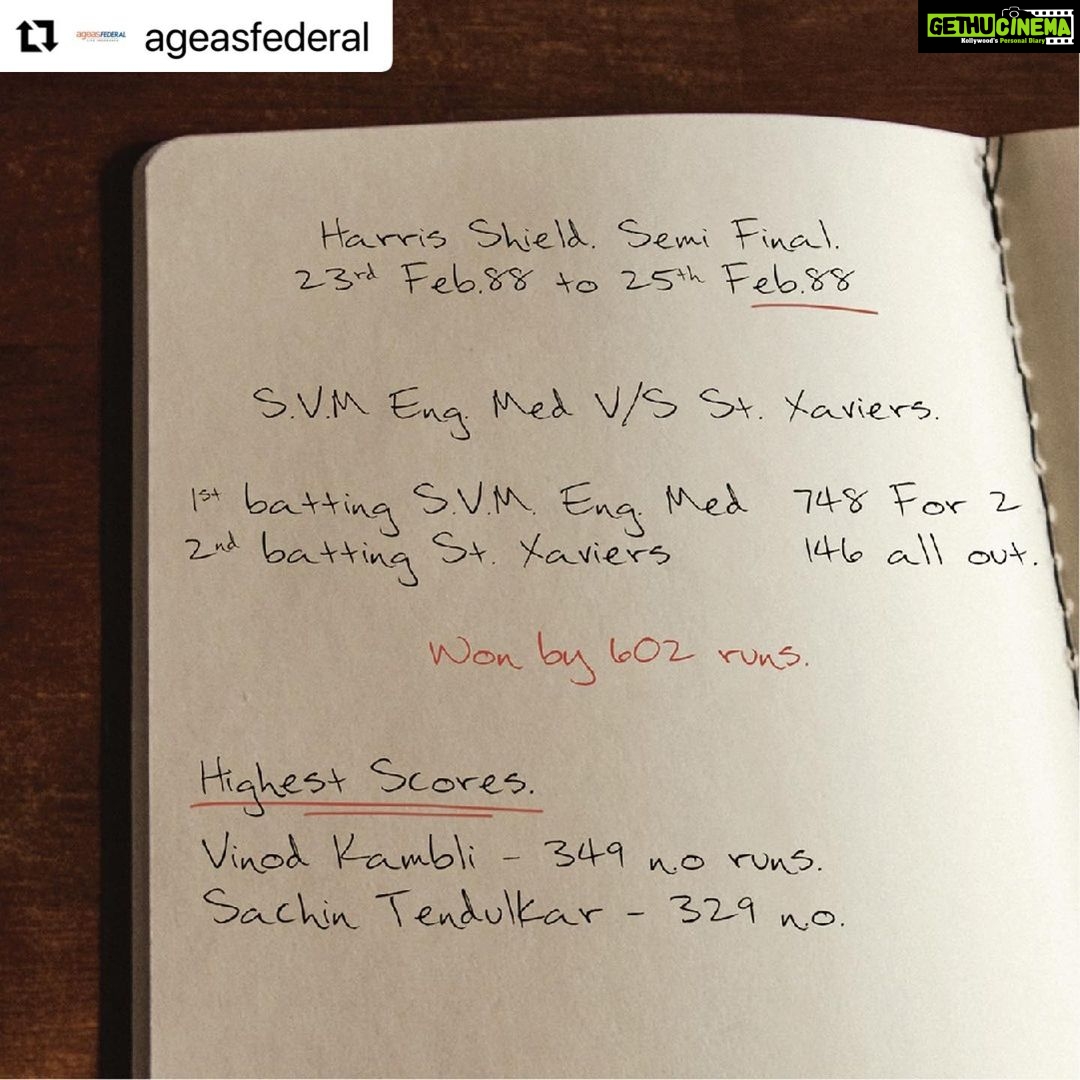 ageasFEDERAL
ageasfederal
GETHUCINEMA
Kollywood's Personal Diary
Harris Shield. Semi Final.
23rd Feb.88 to 25th Feb.88
S.V.M Eng. Med V/S St. Xaviers.
1st batting S.V.M. Eng. Med 748 For 2
2nd batting St. Xaviers 146 all out.
Won by 602 runs.
Highest Scores.
Vinod Kambli - 349 n.o runs.
Sachin Tendulkar - 329 n.o.